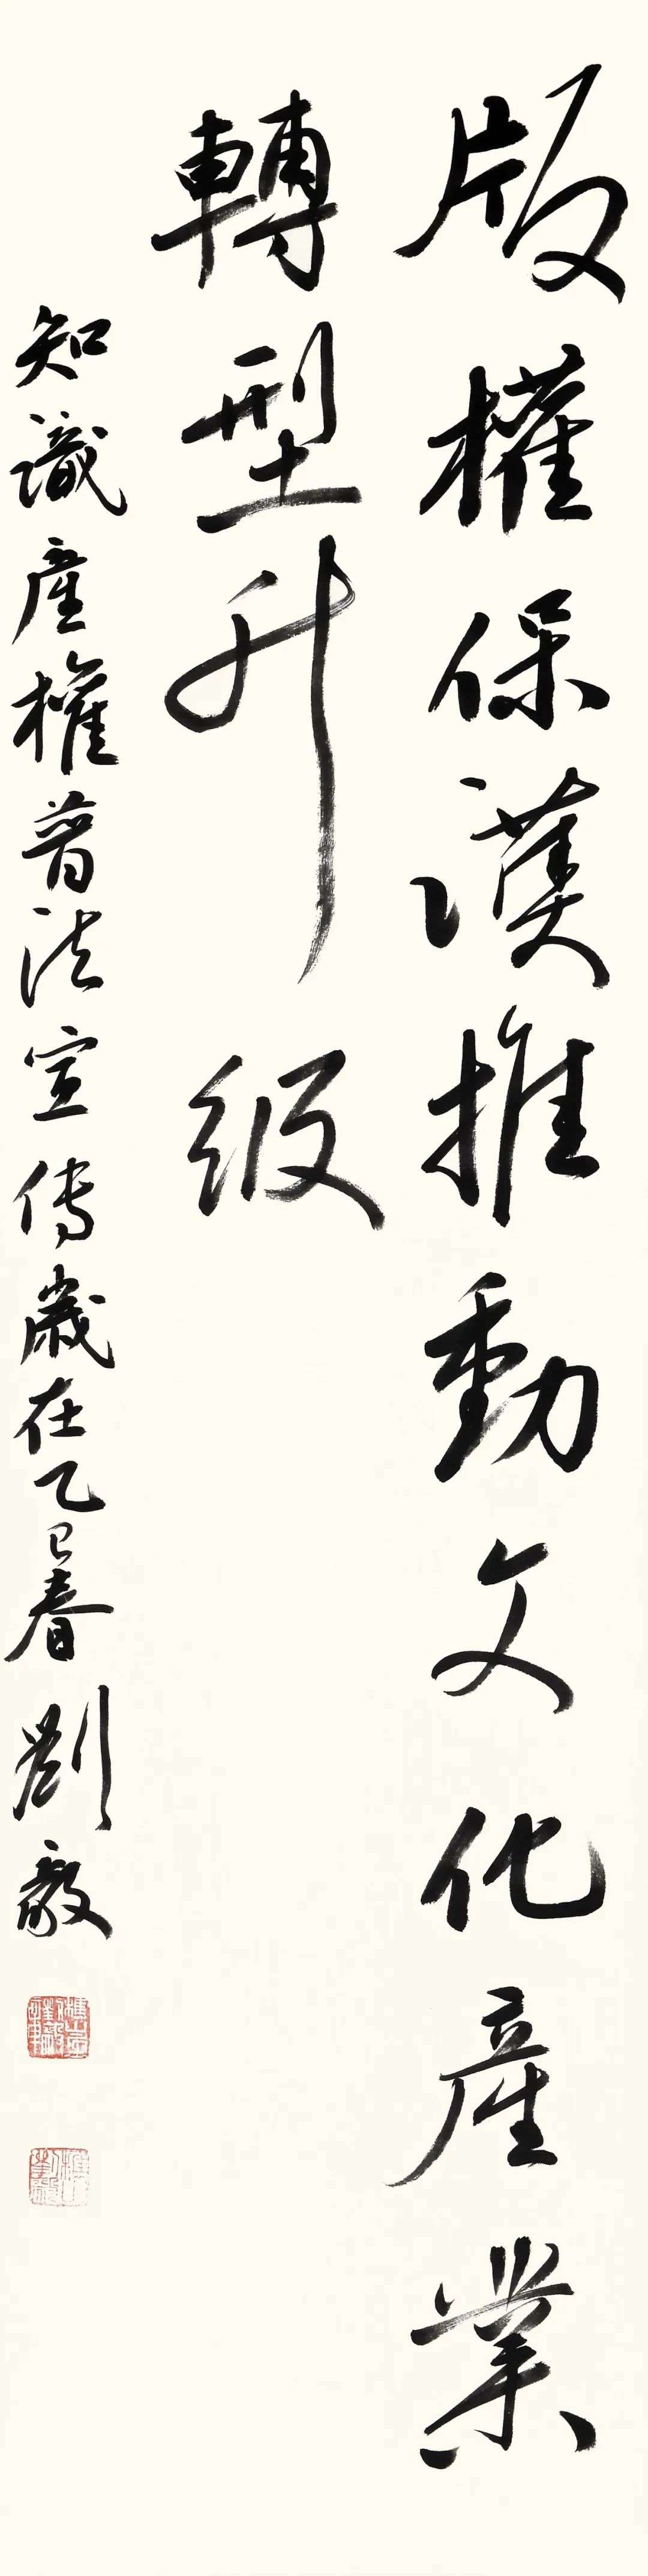 版權保護推動文化產業
轉型升級
知識產權普法宣傳歲在乙巳春劉毅